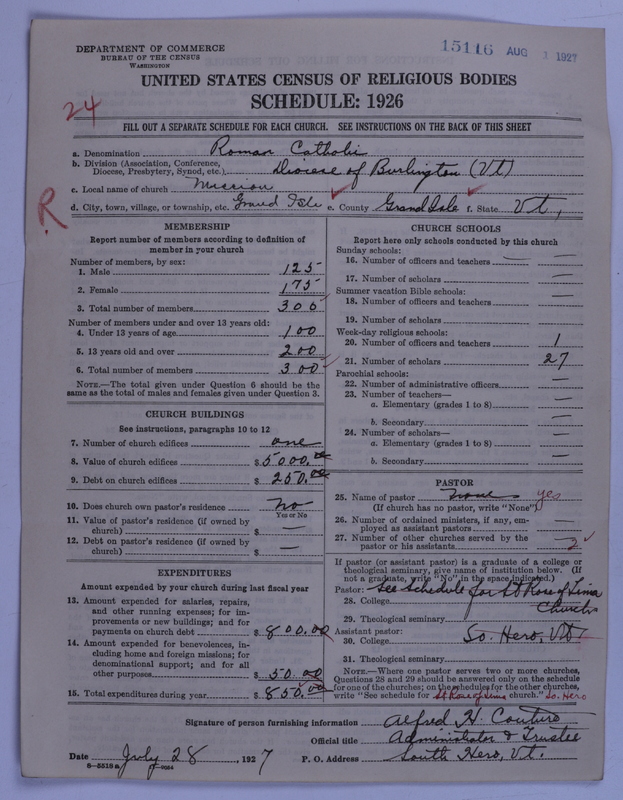 DEPARTMENT OF COMMERCE
BUREAU OF THE CENSUS
WASHINGTON
15116 AUG 1 1927
UNITED STATES CENSUS OF RELIGIOUS BODIES
SCHEDULE: 1926
24
FILL OUT A SEPARATE SCHEDULE FOR EACH CHURCH. SEE INSTRUCTIONS ON THE BACK OF THIS SHEET
a. Denomination Roman Catholic
b. Division (Association, Conference, Diocese, Presbytery, Synod, etc.) Diocese of Burlington (Vt)
c. Local name of church Mission
R
d. City, town, village, or township, etc. Grand Isle e. County Grand Isle f. State Vt,
MEMBERSHIP
Report number of members according to definition of
member in your church
Number of members, by sex:
1. Male 125
2. Female 175
3. Total number of members 300
Number of members under and over 13 years old:
4. Under 13 years of age 100
5. 13 years old and over 200
6. Total number of members 300
NOTE.—The total given under Question 6 should be the
same as the total of males and females given under Question 3.
CHURCH BUILDINGS
See instructions, paragraphs 10 to 12
7. Number of church edifices one
8. Value of church edifices $5000.00
9. Debt on church edifices $250.00
10. Does church own pastor's residence No
Yes or No
11. Value of pastor's residence (if owned by
church) $ —
12. Debt on pastor's residence (if owned by
church) $ —
EXPENDITURES
Amount expended by your church during last fiscal year
13. Amount expended for salaries, repairs,
and other running expenses; for im-
provements or new buildings; and for
payments on church debt $800.00
14. Amount expended for benevolences, in-
cluding home and foreign missions; for
denominational support; and for all
other purposes $50.00
15. Total expenditures during year $850.00
CHURCH SCHOOLS
Report here only schools conducted by this church
Sunday schools:
16. Number of officers and teachers —
17. Number of scholars —
Summer vacation Bible schools:
18. Number of officers and teachers —
19. Number of scholars —
Week-day religious schools:
20. Number of officers and teachers 1
21. Number of scholars 27
Parochial schools:
22. Number of administrative officers —
23. Number of teachers—
a. Elementary (grades 1 to 8) —
b. Secondary —
24. Number of scholars—
a. Elementary (grades 1 to 8) —
b. Secondary —
PASTOR
25. Name of pastor none yes
(If church has no pastor, write "None")
26. Number of ordained ministers, if any, em-
ployed as assistant pastors —
27. Number of other churches served by the
pastor or his assistants 2
If pastor (or assistant pastor) is a graduate of a college or
theological seminary, give name of institution below. (If
not a graduate, write "No" in the space indicated.)
Pastor: See Schedule for St Rose of Lima
28. College Church
29. Theological seminary
Assistant pastor: So. Hero, Vt
30. College
31. Theological seminary
NOTE.—Where one pastor serves two or more churches,
Questions 28 and 29 should be answered only on the schedule
for one of the churches; on the schedules for the other churches,
write "See schedule for St Rose of Lima church." So. Hero
Signature of person furnishing information Alfred H. Couture
Official title Administrator & Trustee
Date July 28, 1927 P. O. Address South Hero, Vt.